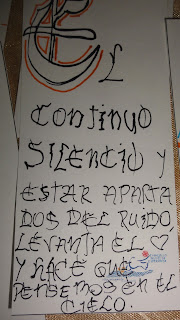 El
Continuo
Silencio y
estar aparta
dos del ruido,
levanta el ♡
y hace que
pensemos en el
cielo.